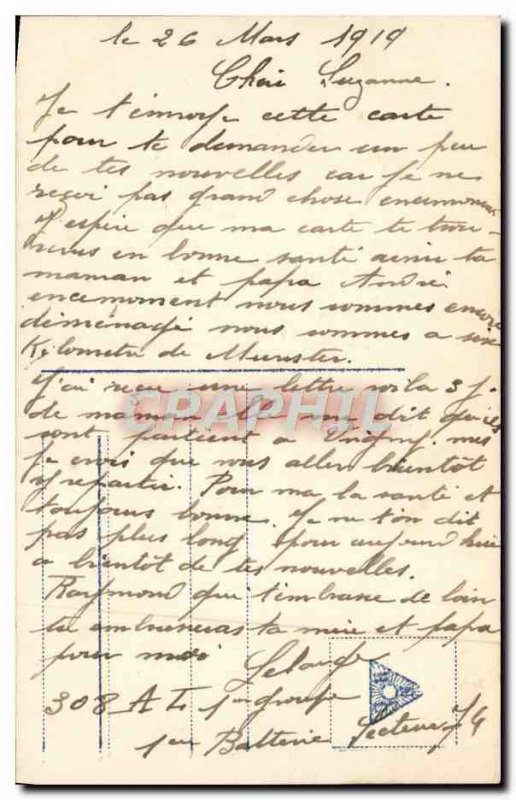 le 26 Mars 1919
Chère Suzanne.
Je t'envoye cette carte
pour te demander un peu
de tes nouvelles car je ne
reçoi pas grand chose encemoment
J'espère que ma carte te trou-
veras en bonne santé ainsi ta
maman et papa André.
encemoment nous sommes encore
déménagé nous sommes a six
Kilomètre de Munster.
J'ai reçu une lettre voila 3 j.
de maman elle me dit qu'ils
sont partient a mes
je crois que vous aller bientôt
y repartir. Pour ma la santé et
toujours bonne. Je ne t'on dit
pas plus long pour aujourd'huie
a bientôt de tes nouvelles.
Raymond qui t'embrasse de loin
tu embrasseras ta mère et papa
pour moi
308 A L 1er groupe
1ere Batterie Secteur 74
CPAPHIL